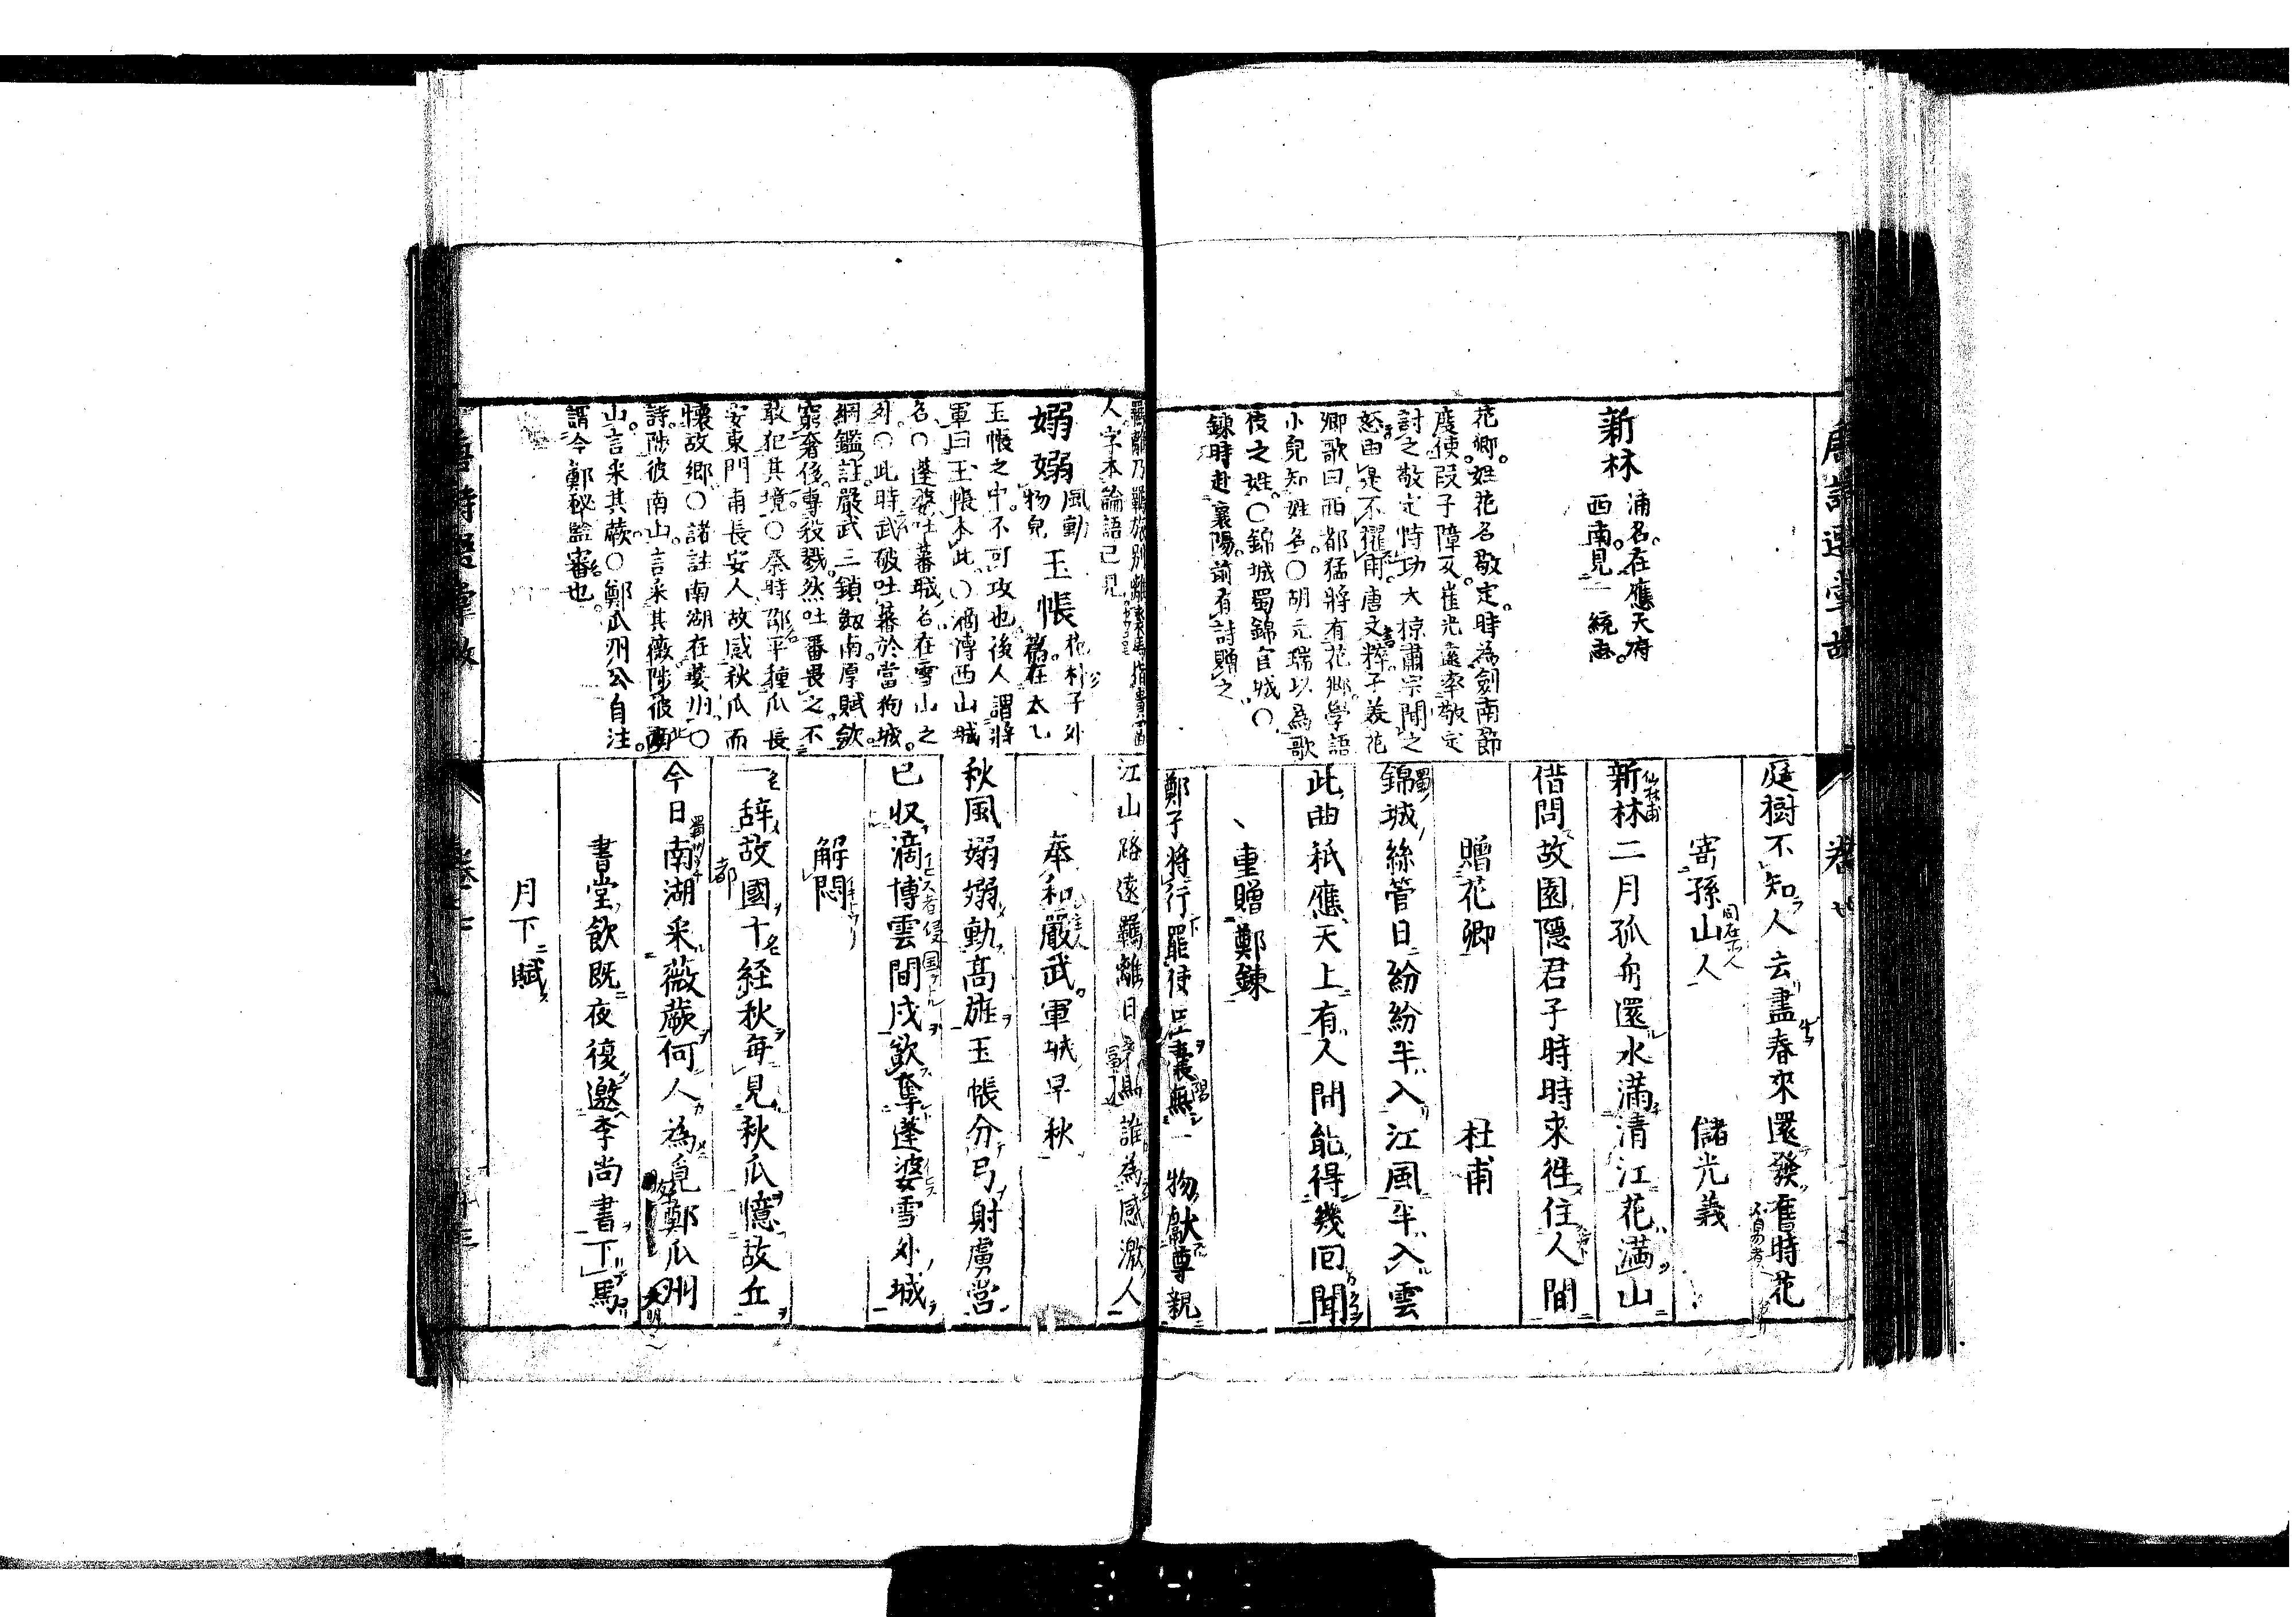 新林
浦名。在應天府
西南。見一統志。
花卿。姓花名敬定。時為劍南節
度使。段子障反。崔光遠率敬定
討之。敬定恃功大掠。肅宗聞之
怒。由是不擢用。唐文粹。子美花
卿歌曰。西都猛將有花卿。學語
小兒知姓名。〇胡元瑞以為歌
伎之姓。〇錦城蜀錦官城。〇
錬時赴襄陽。前有詩贈之
庭樹不知人去盡春來還發舊時花
寄孫山人 儲光義
新林二月孤舟還水滿清江花滿山
借問故園隱君子時時來往住人間
贈花卿 杜甫
錦城絲管日紛紛半入江風半入雲
此曲秪應天上有人間能得幾回聞
重贈鄭錬
鄭子將行罷使臣囊無一物獻尊親
人字本論語已見
嫋嫋
風動
物皃
玉帳
抱朴子外
篇。在太乙
玉帳之中。不可攻也後人謂將
軍曰玉帳本此。〇滴博西山城
名。〇蓬婆吐蕃城名在雪山之
外。〇此時武破吐蕃於當狗城。
綱鑑註嚴武三鎮劔南厚賦歛
窮奢侈專殺戮。然吐番畏之。不
敢犯其境。〇秦時邵平種瓜長
安東門甫長安人故感秋瓜而
懷故郷。〇諸註南湖在䕫州。〇
詩。陟彼南山。言采其薇陟彼南
山。言采其蕨。〇鄭瓜州公自注。
謂今鄭秘監審也。
江山路遠羈離日裘馬誰為感激人
奉和嚴武軍城早秋
秋風嫋嫋動高旌玉帳分弓射虜營
已収滴博雲間戍欲奪蓬婆雪外城
解悶
一辞故國十経秋毎見秋瓜憶故丘
今日南湖采薇蕨何人為覓鄭瓜州
書堂飲既夜復邀李尚書下馬
月下賦